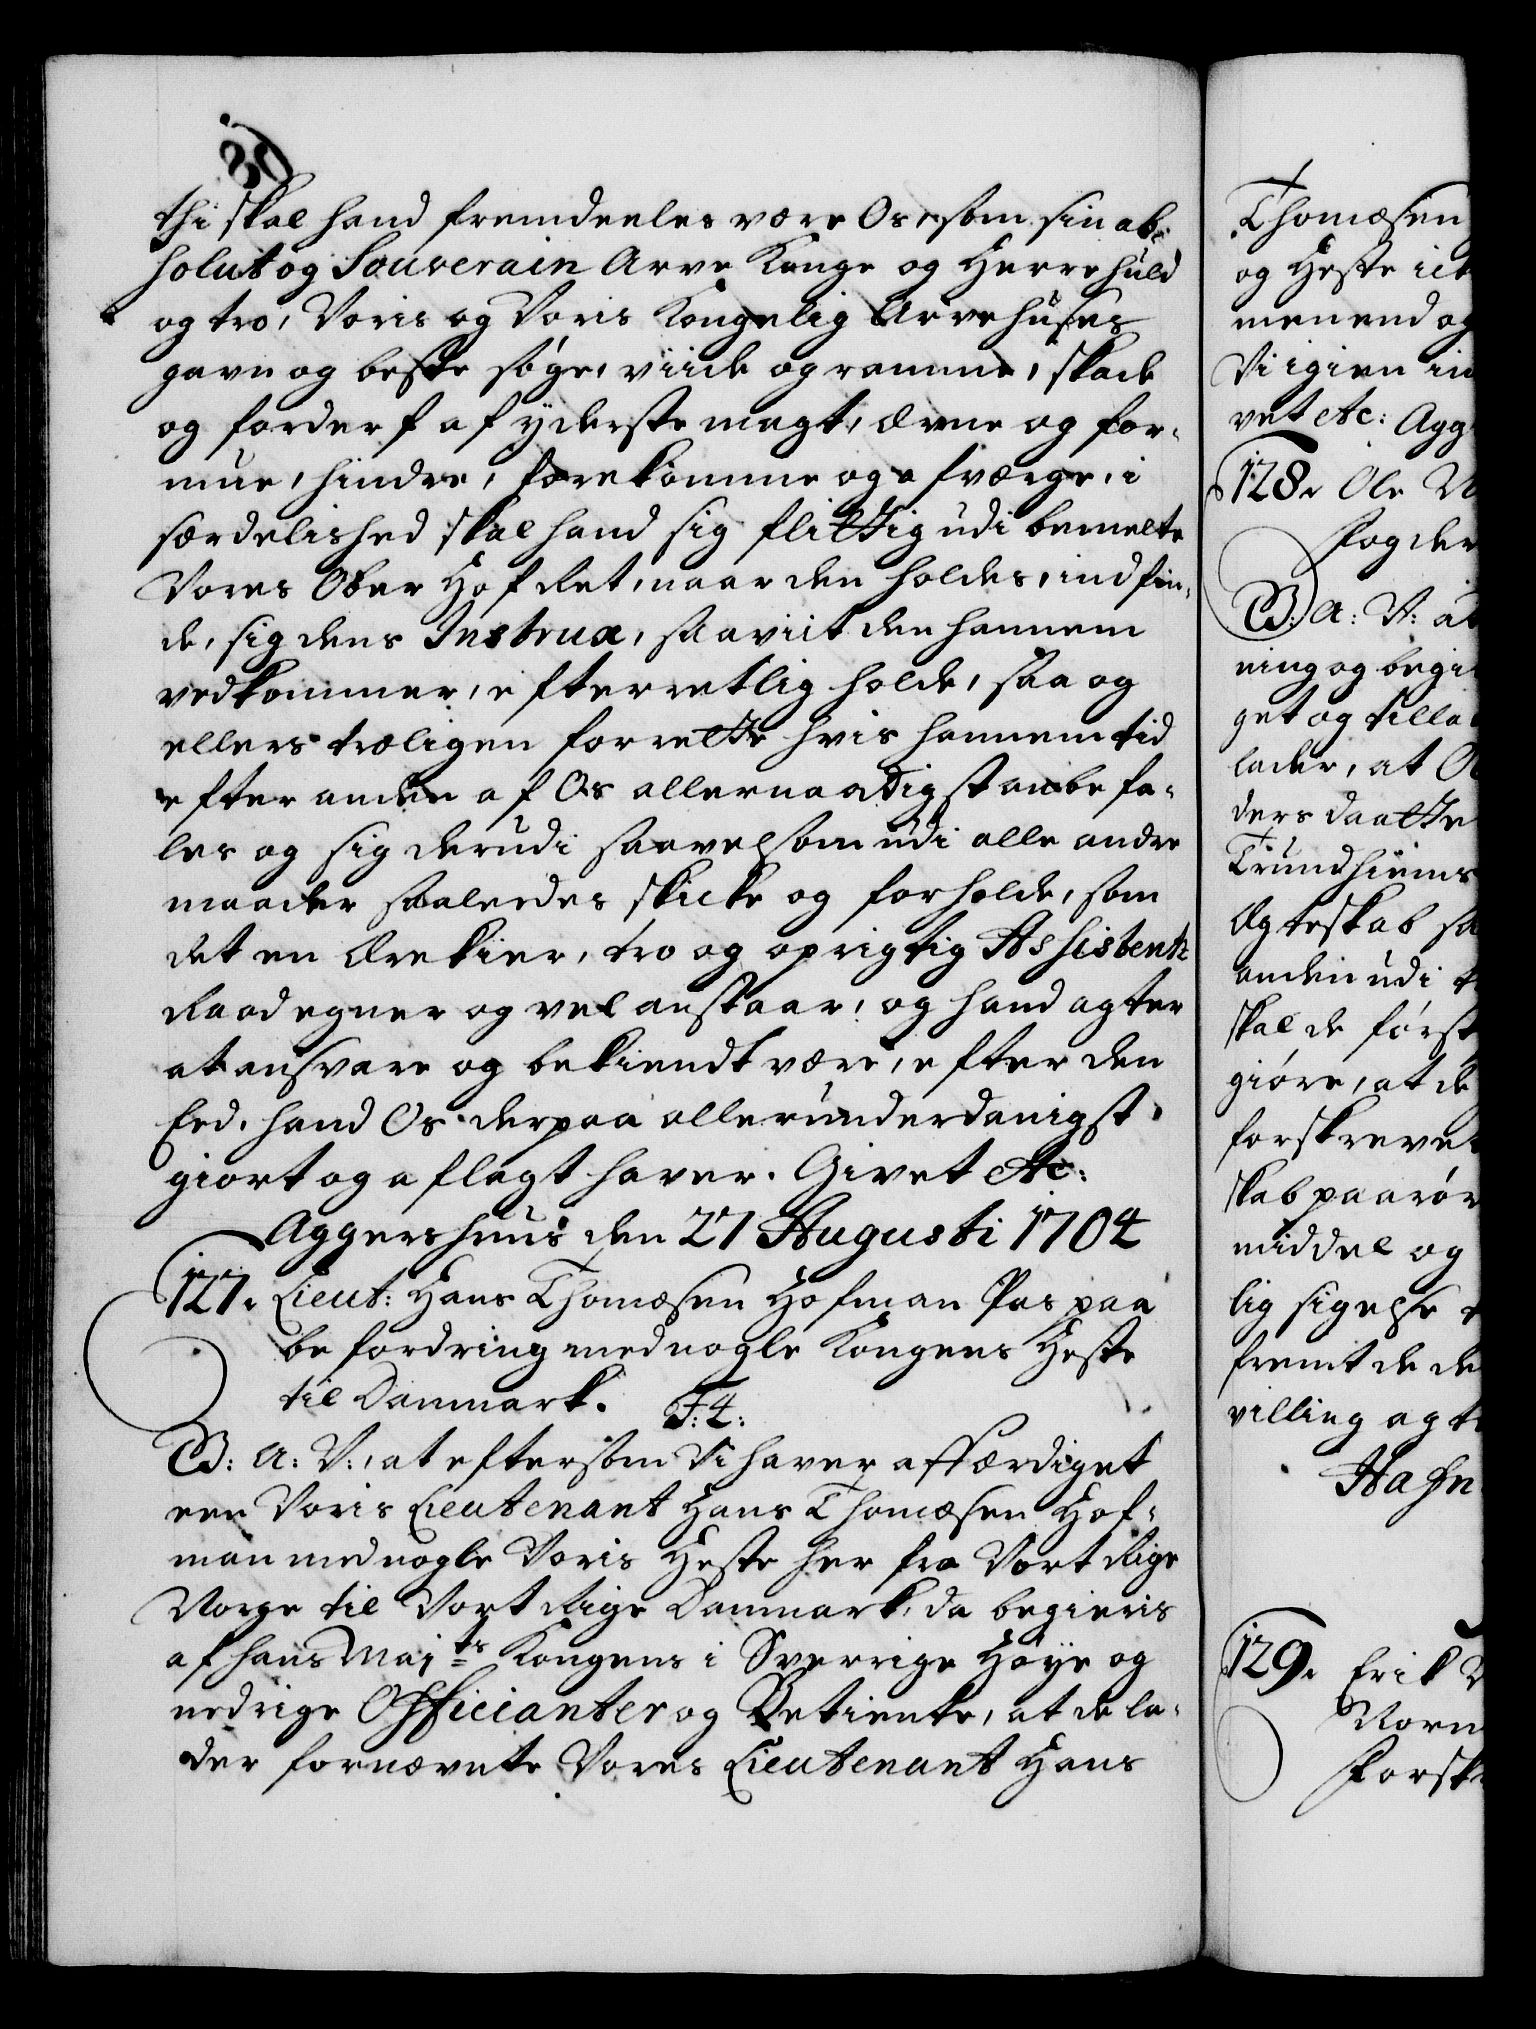 80
thi skal hand fremdeeles være Os, som sin ab-
solut og Souverain Arve Konge og Herre huld
og tro, Voris og Voris Kongelig Arvehuses
gavn og beste søge, viide og ramme, skade
og forderf af yderste magt, ævne og for-
mue, hindre, forekomme og afværge, i
særdelished skal hand sig flittig udi bemelte
Vores Ober Hof Ret, naar den holdes, indfin-
de, sig dens Instrux, saaviit den hannem
vedkommer, efterretlig holde, saa og
ellers troeligen forrette hvis hannem tid
efter anden af Os allernaadigst anbefa-
les og sig derudi saavelsom udi alle andre
maader saaledes skicke og forholde, som
det en Ærekier, tro og oprigtig Assistentz
Raad egner og vel anstaar, og hand agter
at ansvare og bekiendt være, efter den
Eed, hand Os derpaa allerunderdanigst
giort og aflagt haver. Givet etc:
Aggershuus den 27 Augusti 1704
127. Lieut: Hans Thomæsen Hofman Pas paa
befordring med nogle Kongens Heste
til Danmark. F: 4:
G: A: V:, at eftersom Vi haver affærdiget
een Voris Lieutenant Hans Thomæsen Hof-
man med nogle Voris Heste her fra Vort Rige
Norge til Vort Rige Danmark, da begieris
af hans Maj:ts Kongens i Sverrige Høye og
nedrige Officianter og Betiente, at de la-
der fornævnte Vores Lieutenant Hans
Thomæsen
og Heste
meneend og
Vi igien
vet etc: Agg
128. Ole
Fogder
G: A: V: at
ning og begi
get og tilla
lader, at
ders daatte
Trundhiems
Ægteskab
anden udi
skal de først
giøre, at de
forskreve
skab paarør
middel og
lig sigelse
fremt de de
villing agt
Hafn
129. Erik
Forsk